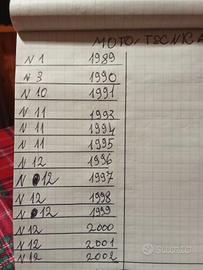 MOTO/TSCNICA
N 1 1989
N 3 1990
N 10 1991
N 11 1993
N 11 1994
N 11 1995
N 12 1996
N 12 1997
N 12 1998
N 12 1999
N 12 2000
N 12 2001
N 12 2002
subito